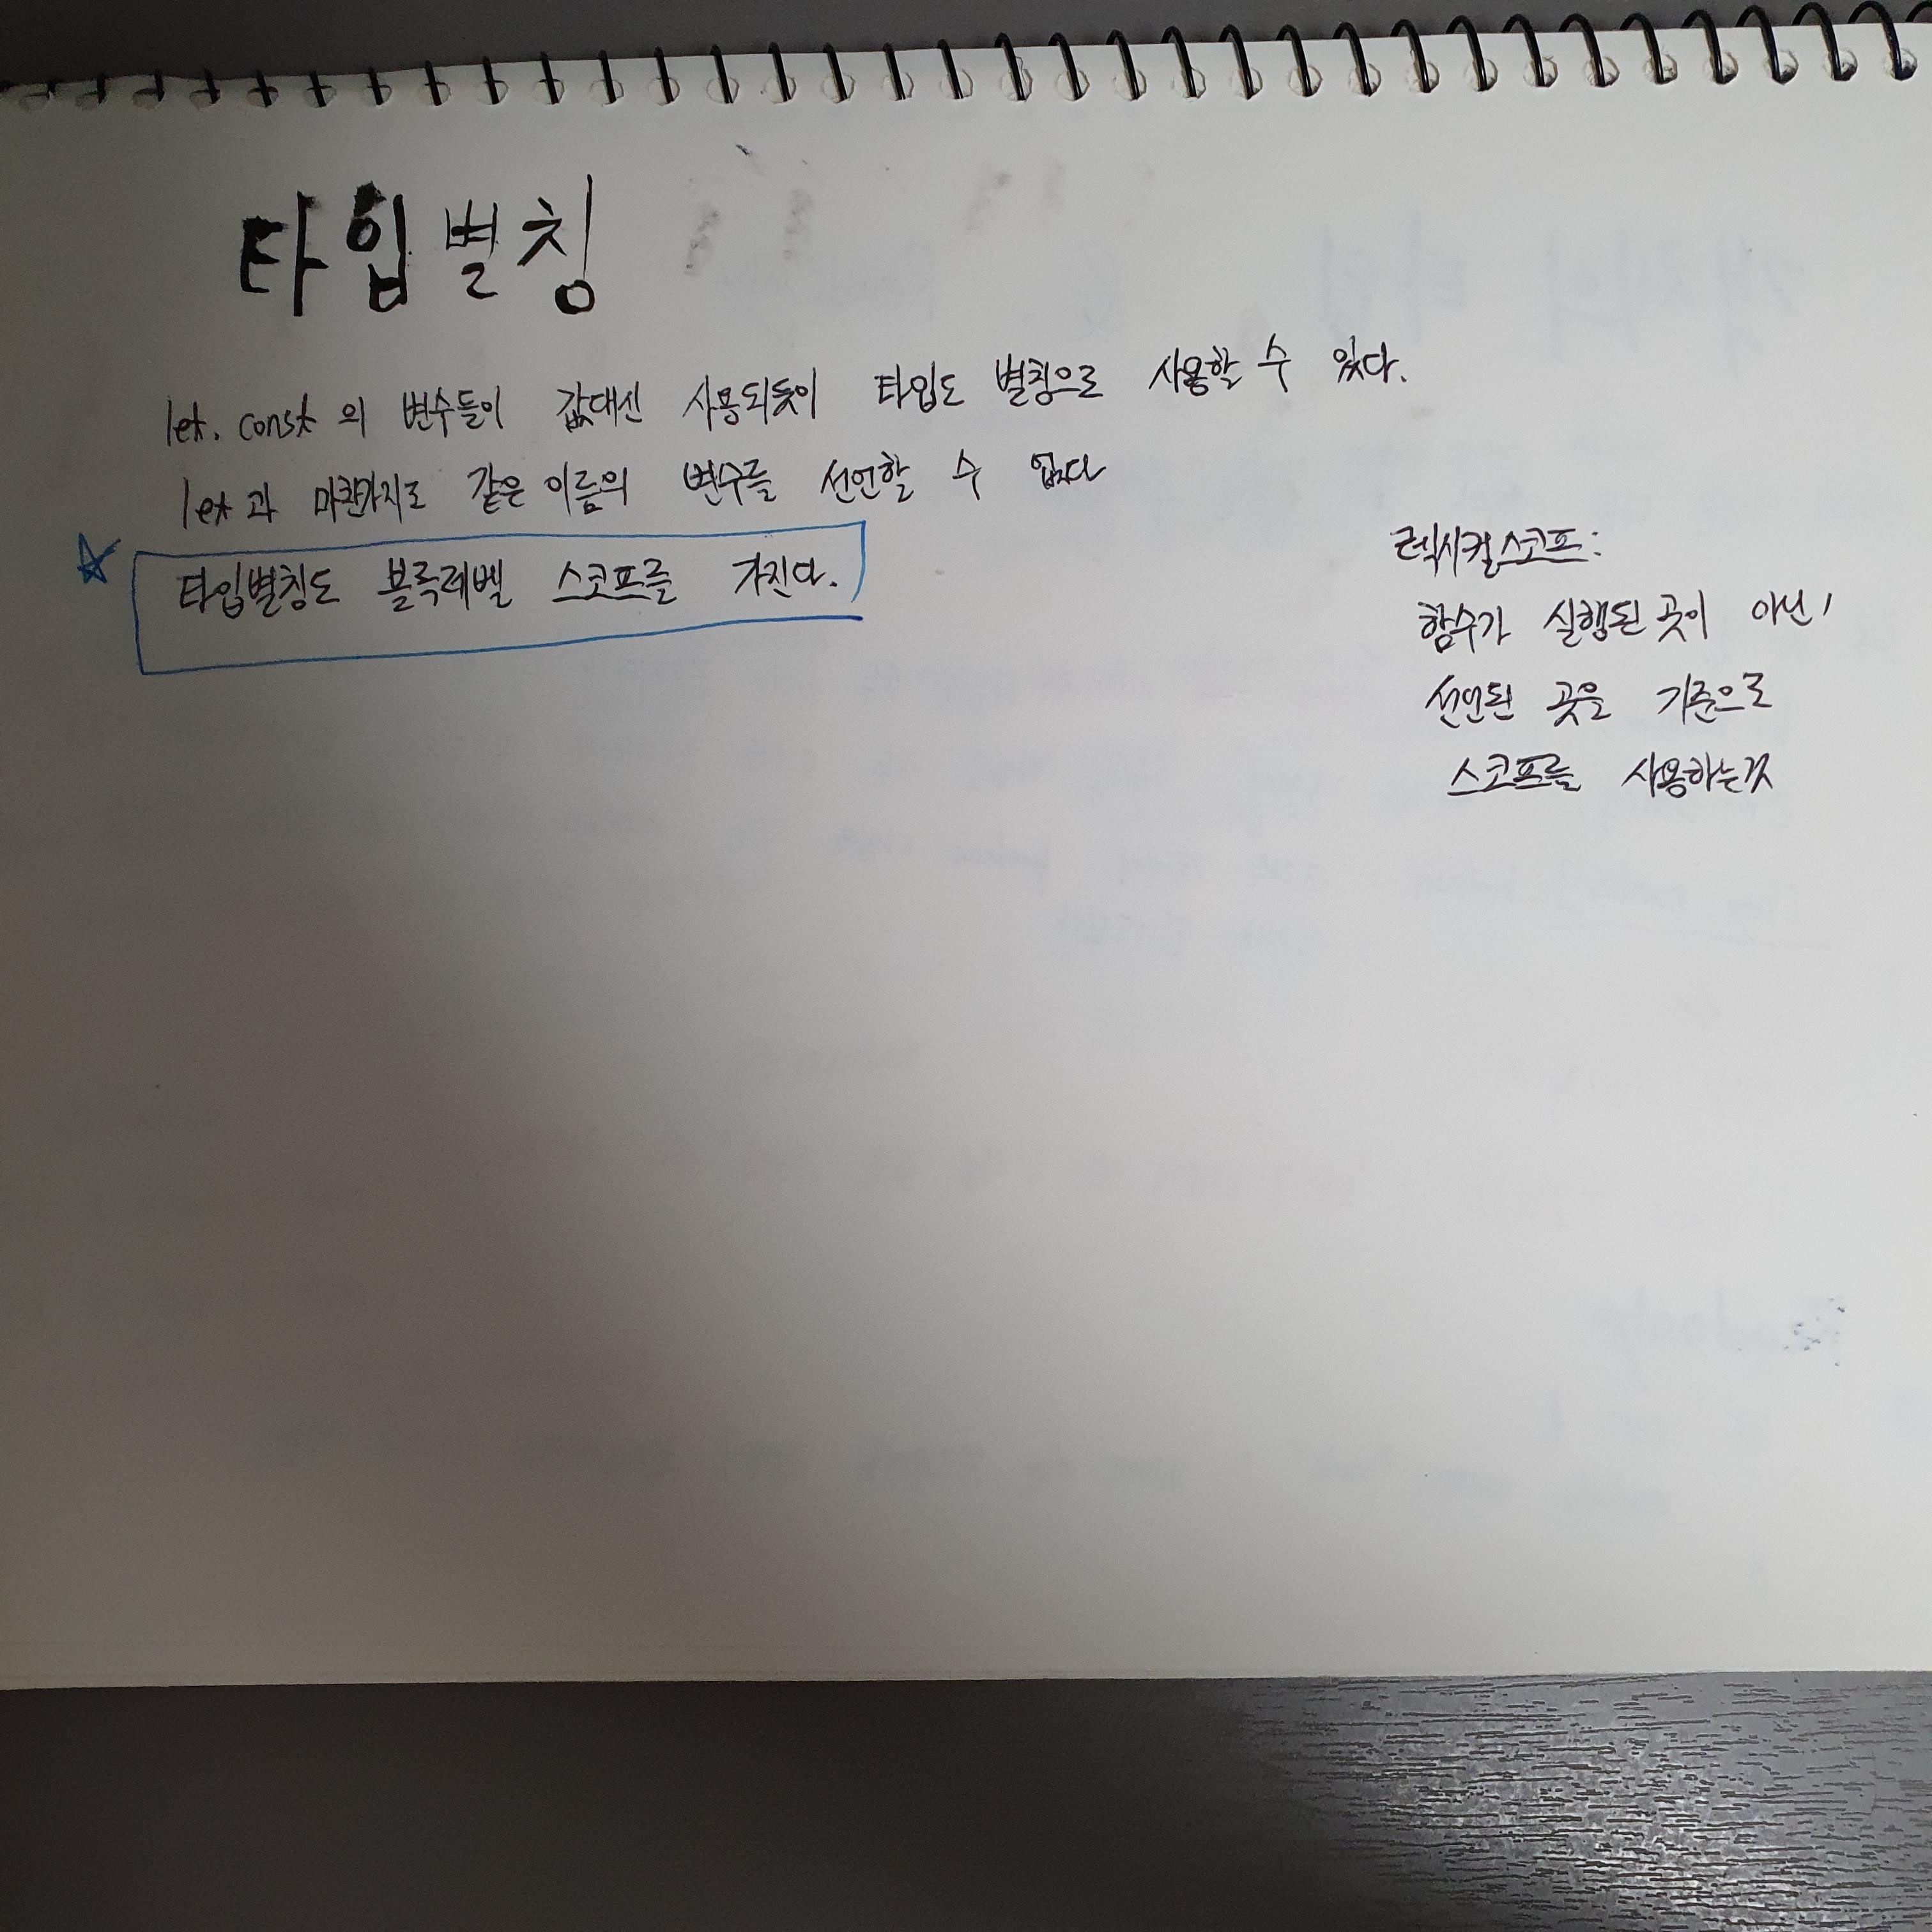 타입별칭
let, const 의 변수들이 값대신 사용되듯이 타입도 별칭으로 사용할 수 있다.
let과 마찬가지로 같은 이름의 변수를 선언할 수 없다
타입별칭도 블록레벨 스코프를 가진다.
렉시컬스코프:
함수가 실행된 곳이 아닌,
선언된 곳을 기준으로
스코프를 사용하는것